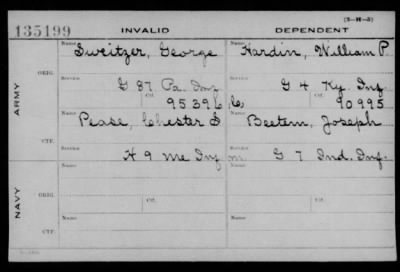 (3-H-5)
135199 INVALID DEPENDENT
Name Name
Sweitzer, George Hardin, William P.
ORIG.
Service Service
G 87 Pa. Inf G 4 Ky. Inf
ARMY
Ctf. Ctf.
95396 90995
Name Name
Pease, Chester S Beetem, Joseph
CTF.
Service Service
H 9 Me Inf G 7 Ind. Inf.
Name Name
ORIG.
Service Ctf. Service Ctf.
NAVY
Name Name
CTF.
Service Service